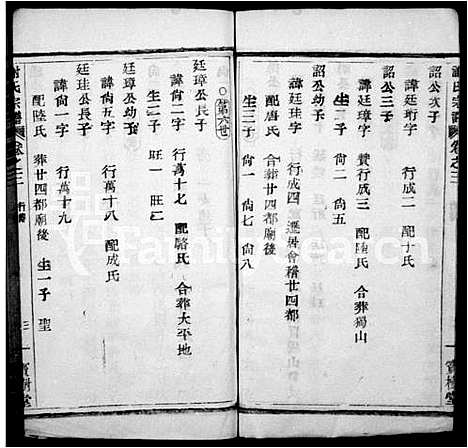 謝氏宗譜 卷之三
詔公次子
諱廷珩字 行成二 配丁氏
詔公三子
諱廷璋字 贊行成三 配陳氏 合葬獨山
生二子 尙二 尙五
詔公幼子
諱廷珪字 行成四 遷居會稽廿四都
配唐氏 合葬廿四都廟後
生三子 尙一 尙七 尙八
寶樹堂
○第六世
廷璋公長子
諱尙二字 行萬十七 配駱氏 合葬大平地
生二子 旺一 旺二
廷璋公幼子
諱尙五字 行萬十八 配成氏
廷珪公長子
諱尙一字 行萬十九
配陸氏 葬廿四都廟後 生一子 聖
謝氏宗譜 卷之三 行傳
三
寶樹堂
FamilySearch